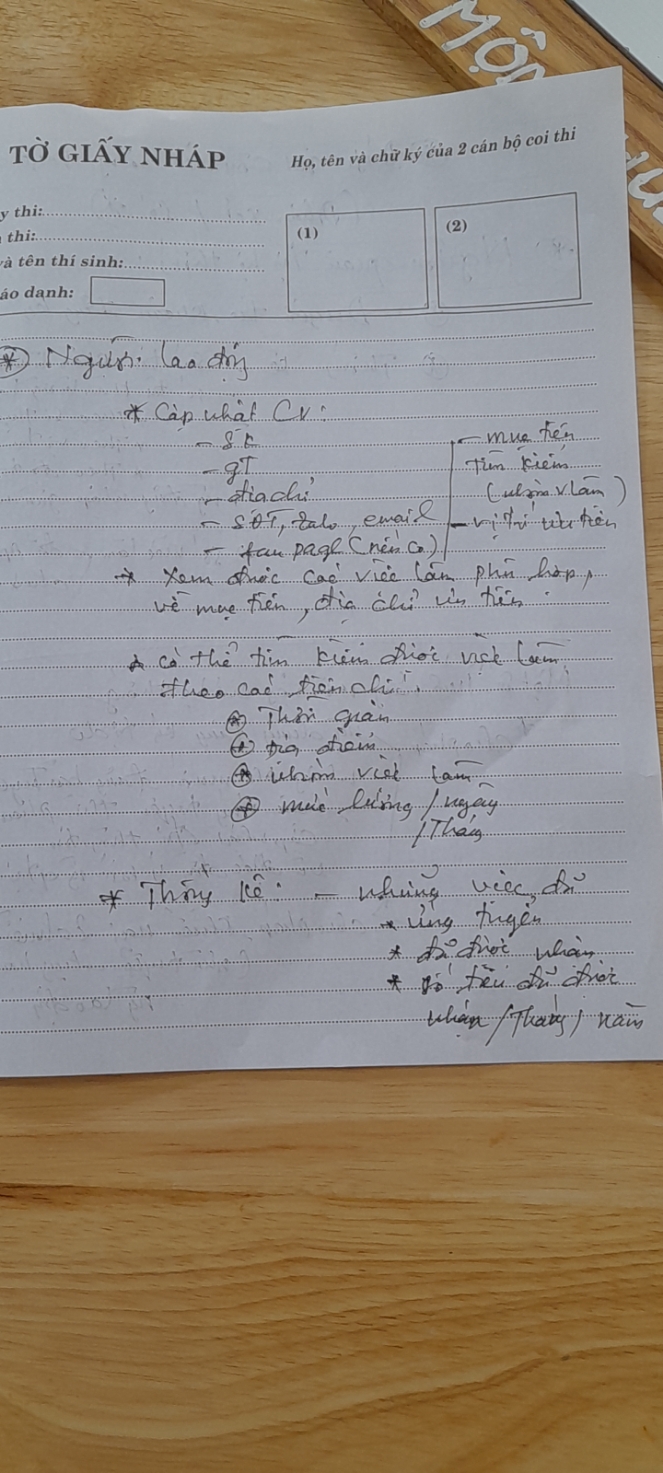 MÔN
TỜ GIẤY NHÁP
Họ, tên và chữ ký của 2 cán bộ coi thi
y thi:
thi:
và tên thí sinh:
áo danh:
(1)
(2)
* Người lao động
* Cập nhật CV:
- GT
- địa chỉ
- SĐT, Zalo, email
- fan page (nếu có)
- mục tiêu
tìm kiếm
(nhóm v làm)
- vị trí ưu tiên
* Xem được các việc làm phù hợp,
về mục tiêu, địa chỉ ưu tiên.
* có thể tìm kiếm được việc làm
theo các tiêu chí:
* Thời gian
* địa điểm
* nhóm việc làm
* mức lương / ngày
/ Tháng
* Thống kê: - những việc đã
* ứng tuyển
* đã được nhận
* số tiền đã được
nhận / Tháng / năm